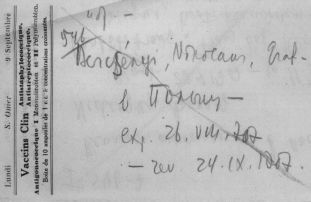 Lundi S. Omer 9 Septembre
Vaccins Clin Antistaphylococcique.
Antistreptococcique.
Antigonococcique I Monomicrobien et II Polymicrobien.
Boîte de 10 ampoules de 1 c.c. à concentrations croissantes.
Bercsényi, Nikolaus, Graf
в Польшу —
exp. 26. VIII. 707
— 24. IX. 1707.